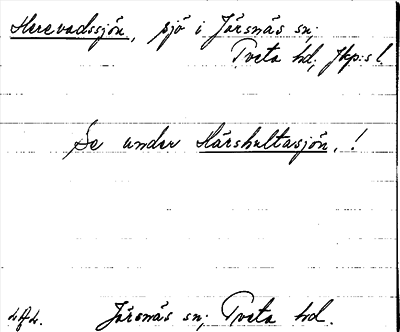 Herevadssjön, sjö i Järsnäs sn;
Tveta hd; Jkp:s l
Se under Härshultasjön, !
Järsnäs sn; Tveta hd.